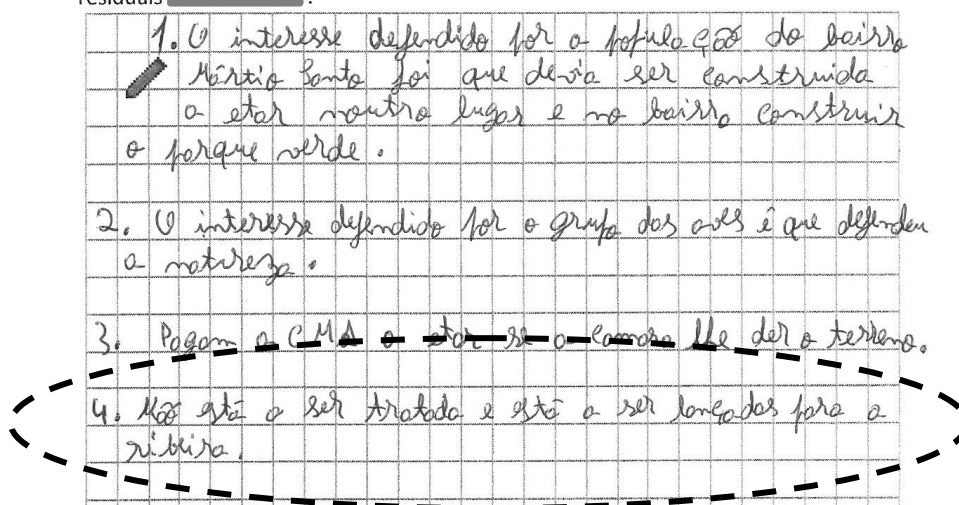 residuais ?
1. O interesse defendido por a população do bairro
Mártio Santo foi que devia ser construida
a etar noutro lugar e no bairro construir
o parque verde.
2. O interesse defendido por o grupo das aves é que defendeu
a natureza.
3. Pagam a CMA a etar se a camara lhe der o terreno.
4. Não está a ser tratada e está a ser lançados para a
ribeira.